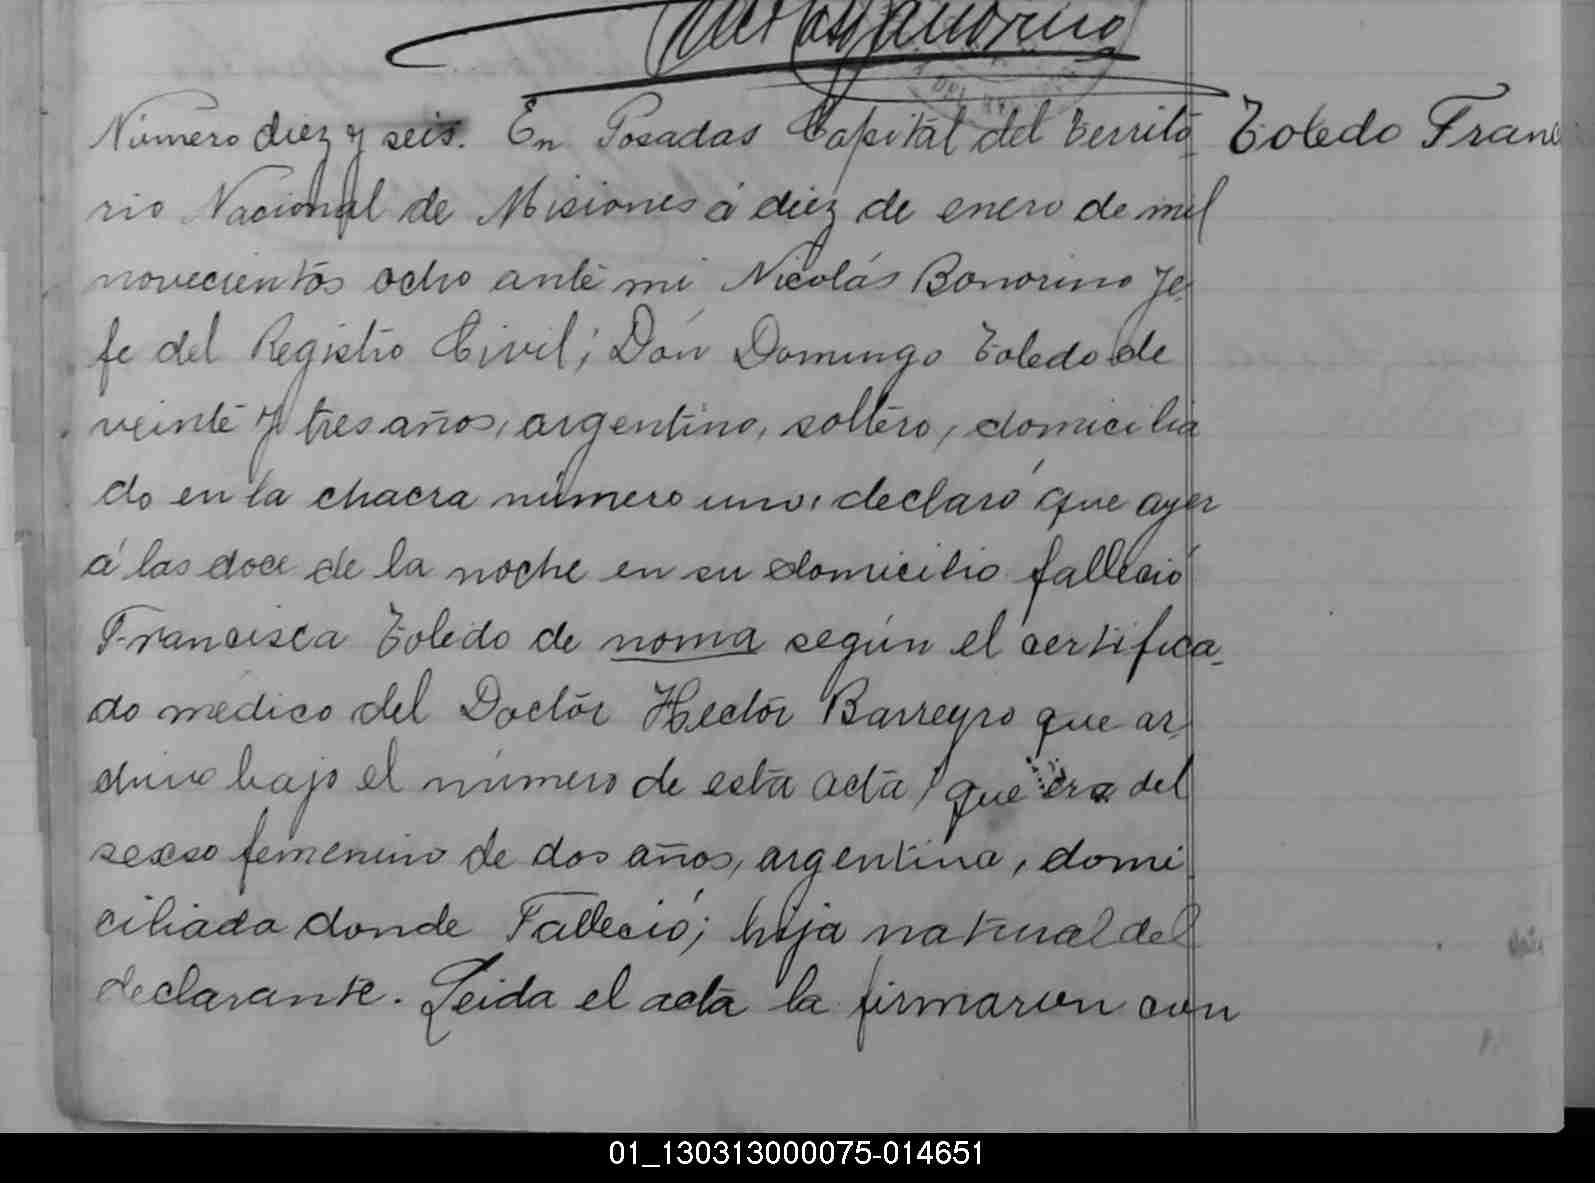 Bonorino
Número diez y seis. En Posadas Capital del Territo-
rio Nacional de Misiones á diez de enero de mil
novecientos ocho ante mi Nicolás Bonorino Je-
fe del Registro Civil; Don Domingo Toledo de
veinte y tres años, argentino, soltero, domicilia
do en la chacra número uno, declaró que ayer
á las doce de la noche en su domicilio falleció
Francisca Toledo de noma según el certifica-
do médico del Doctor Hector Barreyro que ar-
chivo bajo el número de esta acta; que era del
sexso femenino de dos años, argentina, domi
ciliada donde Falleció; hija natural del
declarante. Leida el acta la firmaron con
Toledo Franc
01_130313000075-014651